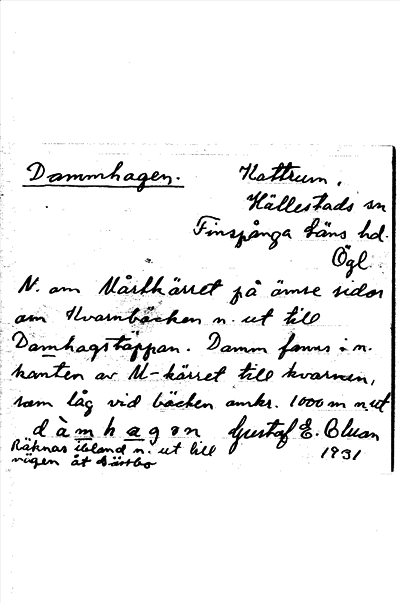 Dammhagen.
Kattrum,
Hällestads sn
Finspånga läns hd.
Ögl
N. om Mårtkärret på ömse sidor
om Kvarnbäcken n. ut till
Damhagstäppan. Damm fanns i n.
kanten av M-kärret till kvarnen,
som låg vid bäcken omkr. 1000 m n. ut
dàmhagən Gustaf E. Cluan
Räknas ibland n. ut till 1931
vägen åt